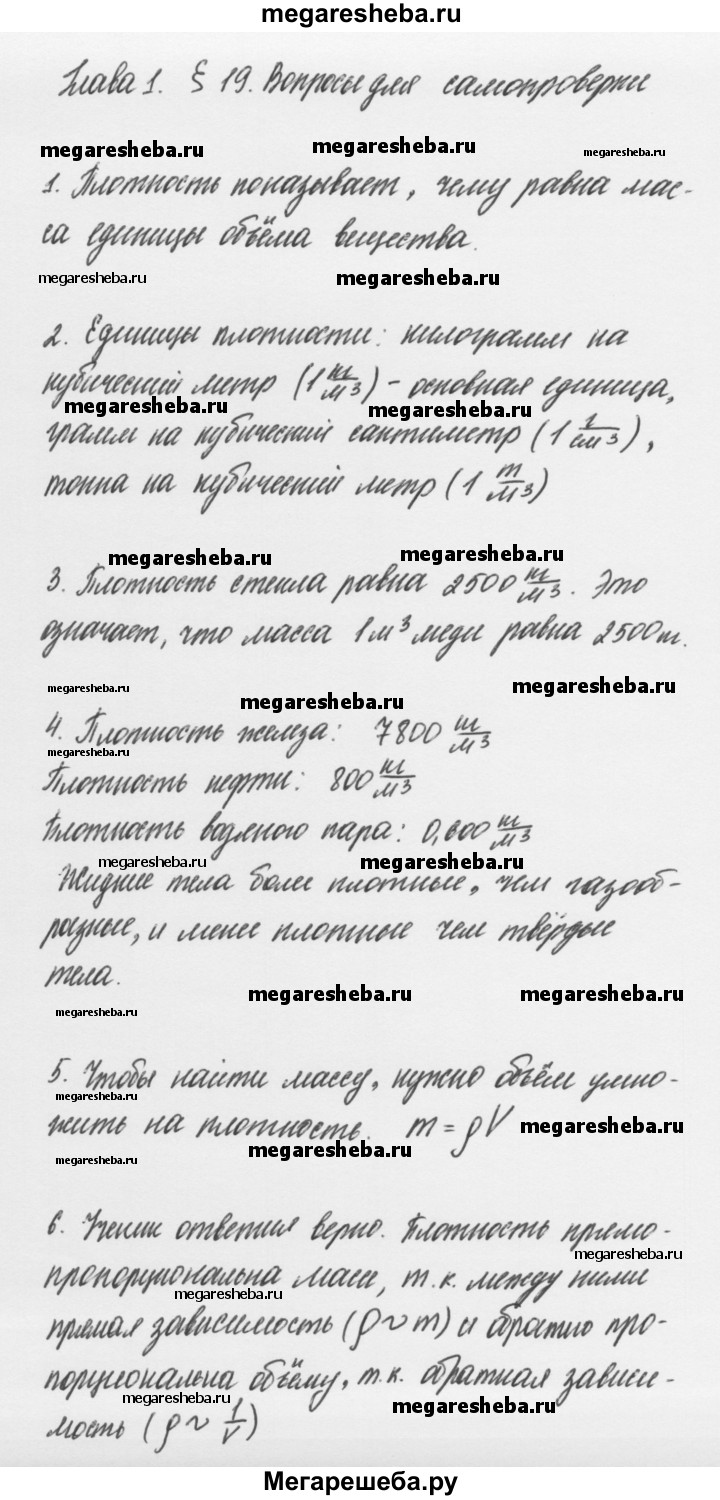 megaresheba.ru
Глава 1. § 19. Вопросы для самопроверки
megaresheba.ru megaresheba.ru megaresheba.ru
1. Плотность показывает, чему равна мас-
са единицы объёма вещества.
megaresheba.ru megaresheba.ru
2. Единицы плотности: килограмм на
кубический метр (1 кг/м³) - основная единица,
megaresheba.ru megaresheba.ru
грамм на кубический сантиметр (1 г/см³),
тонна на кубический метр (1 т/м³)
megaresheba.ru megaresheba.ru
3. Плотность стекла равна 2500 кг/м³. Это
означает, что масса 1 м³ меди равна 2500 кг.
megaresheba.ru megaresheba.ru megaresheba.ru
4. Плотность железа: 7800 кг/м³
megaresheba.ru
Плотность нефти: 800 кг/м³
Плотность водяного пара: 0,600 кг/м³
megaresheba.ru megaresheba.ru
Жидкие тела более плотные, чем газооб-
разные, и менее плотные чем твёрдые
тела.
megaresheba.ru megaresheba.ru megaresheba.ru
5. Чтобы найти массу, нужно объём умно-
megaresheba.ru
жить на плотность. m = ρV
megaresheba.ru megaresheba.ru megaresheba.ru
6. Ученик ответил верно. Плотность прямо-
megaresheba.ru
пропорциональна массе, т.к. между ними
megaresheba.ru
прямая зависимость (ρ ~ m) и обратно про-
порциональна объёму, т.к. обратная зависи-
megaresheba.ru megaresheba.ru
мость (ρ ~ 1/V)
Мегарешеба.ру